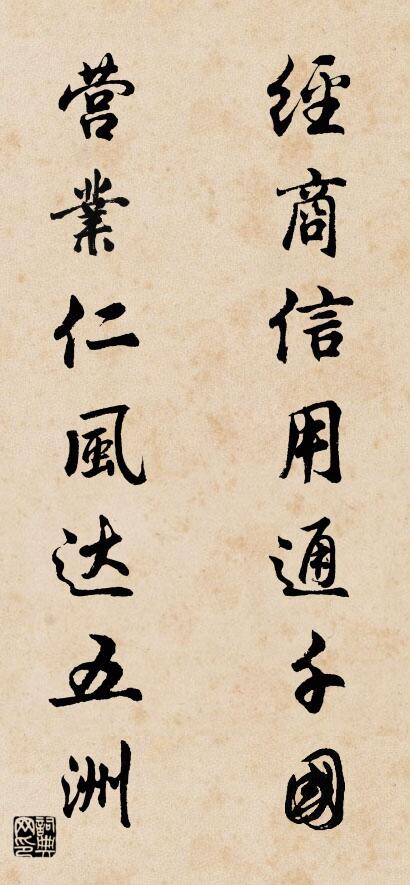 經商信用通千國
营業仁風达五洲
詞典网印